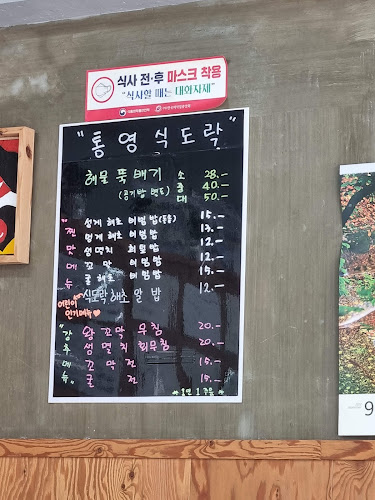 식사 전·후 마스크 착용
"식사할 때는 대화자제"
"통영식도락"
해물 뚝배기 소 28.-
(공기밥 별도) 중 40.-
대 50.-
"찐만메뉴"
성게 해초 비빔밥 15.-
멍게 해초 비빔밥 13.-
생멸치 회덮밥 12.-
꼬막 비빔밥 12.-
굴 해초 비빔밥 15.-
식도락 해초 알밥 12.-
어린이 인기메뉴♥
"강추메뉴"
왕꼬막 무침 20.-
생멸치 회무침 20.-
꼬막전 15.-
굴전 15.-
9